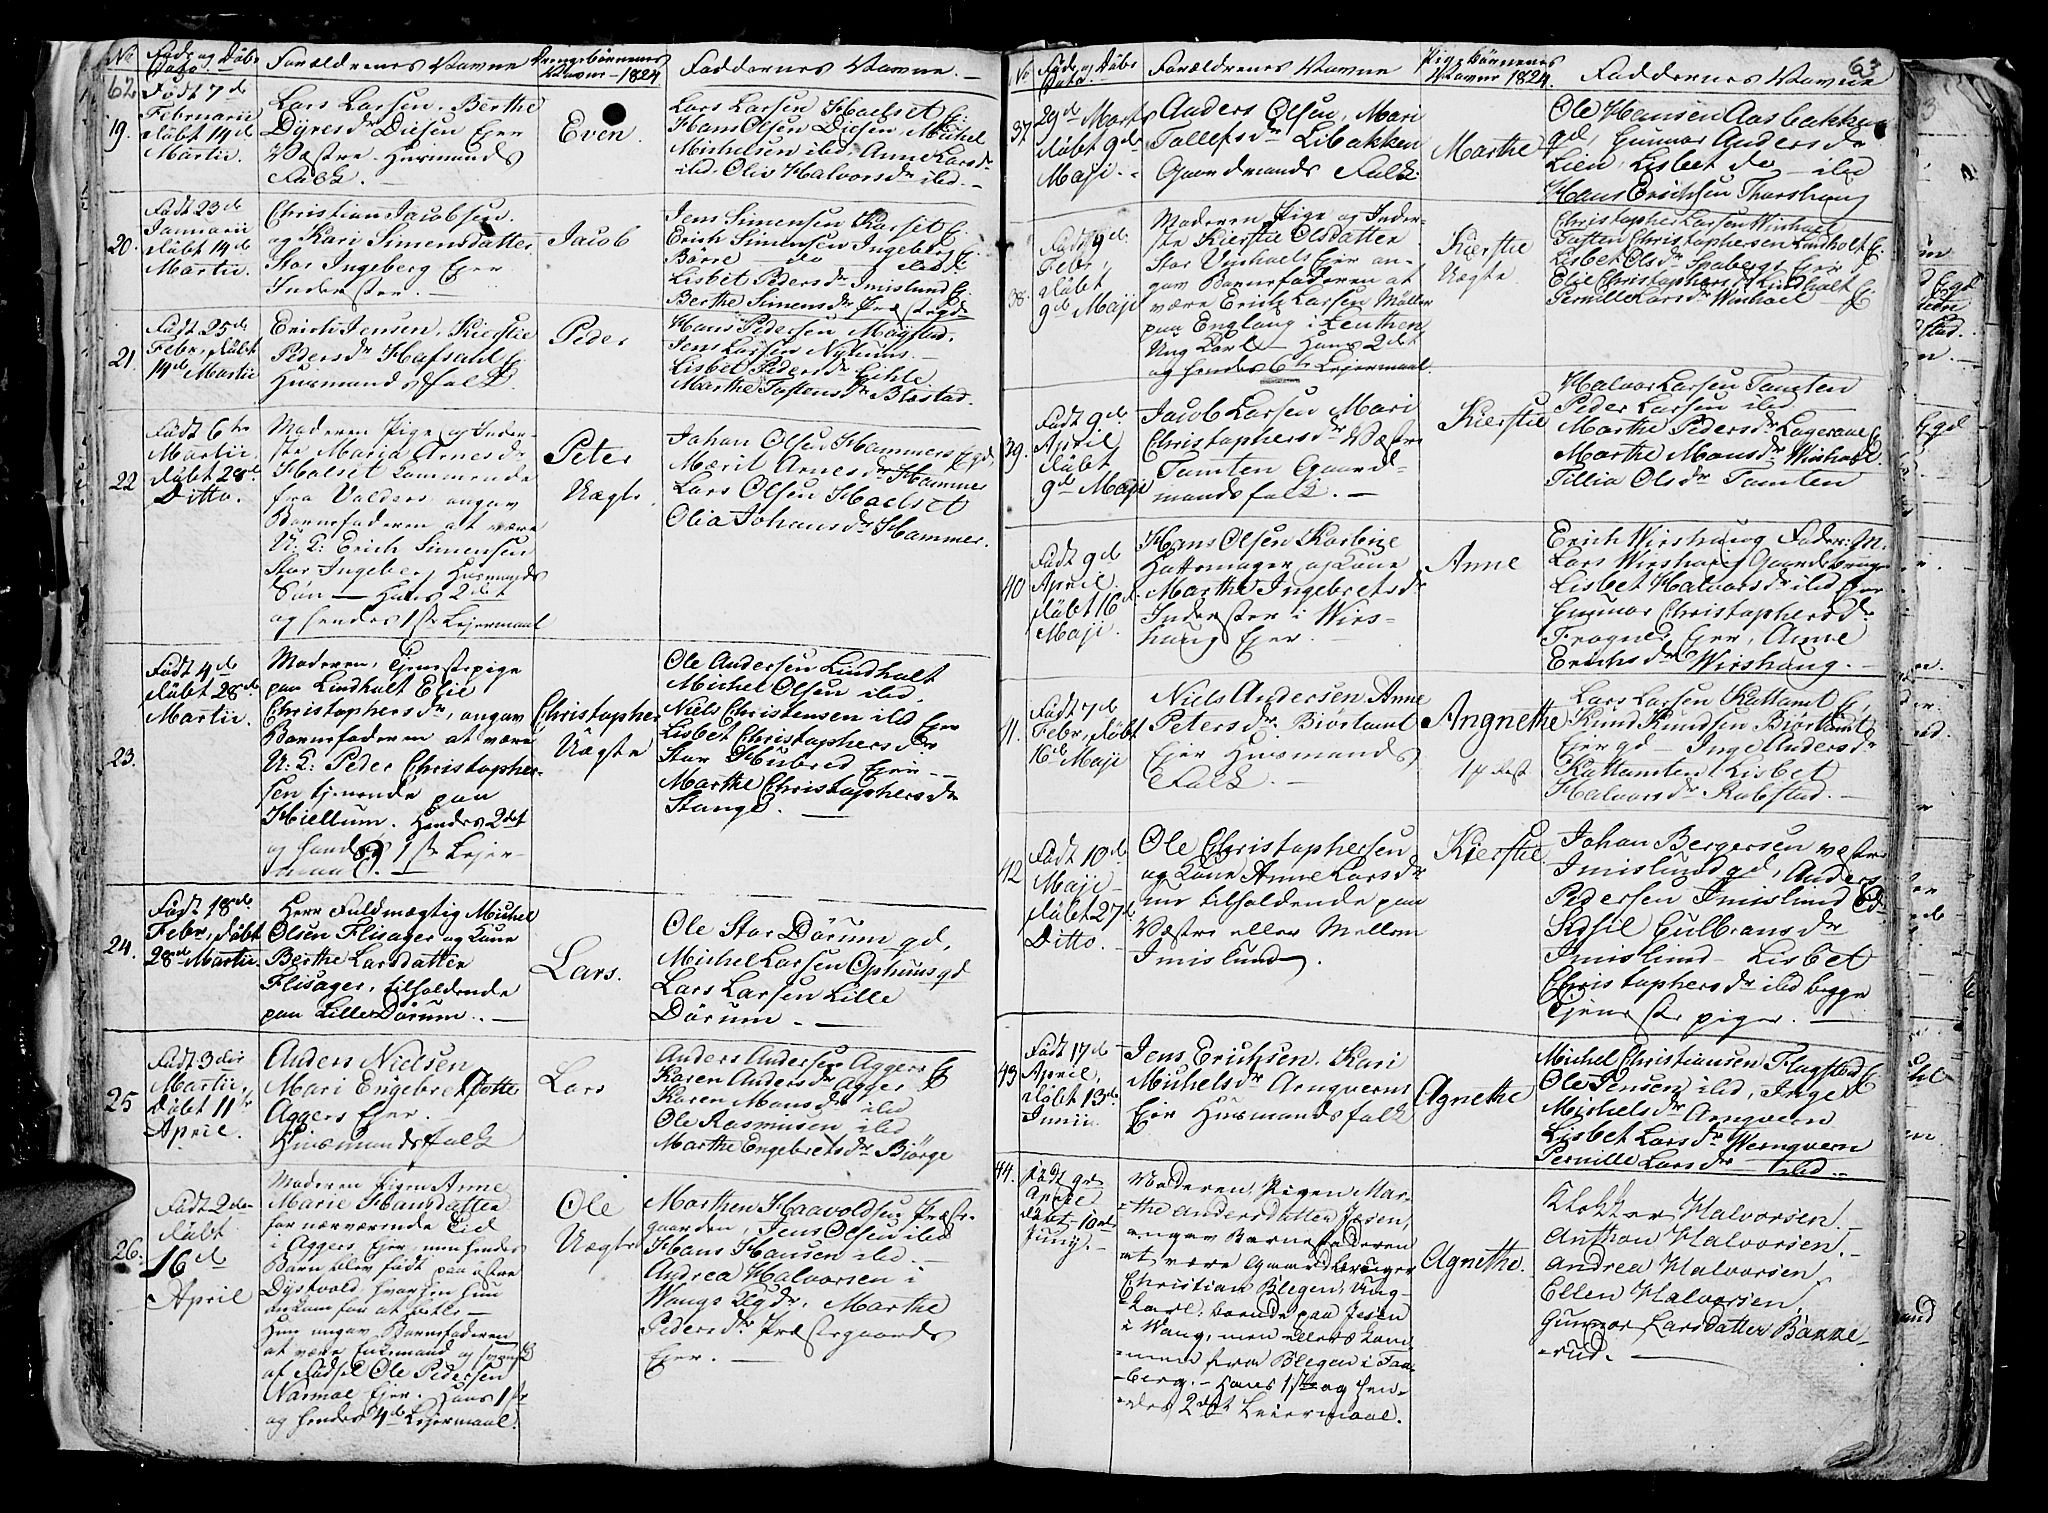 62
No
Føds og Døbs
Dage.
Forældrenes Navne
Drengebørnenes
Navne 1824
Faddernes Navne.
19.
Født 7de
Februarii
døbt 14de
Martii.
Lars Larsen, Berthe
Dyresdr Diesen Eier
Væstre Huusmands
Folk.
Even.
Lars Larsen Hoelset E:
Hans Olsen Diesen Michel
Michelsen ibd. Anne Larsdr
ibd. Olis Halvorsdr ibd.
20.
Født 23de
Januarii
døbt 14de
Martii.
Christian Jacobsen
og Kari Simensdatter
Stor Ingeberg Ejer
Inderster.
Jacob
Jens Simensen Korset E.
Erich Simensen Ingeberg E.
Borre do ibd
Lisbet Pedersdr Imislund E.
Berthe Simensdr Præstegd
21.
Født 25de
Febr, døbt
14de Martii
Erich Jensen, Kierstie
Pedersdr Hafsahl E.
Huusmandsfolk
Peder
Hans Pedersen Maystad.
Jens Larsen Nyhuus.
Lisbet Pedersdr Hihle.
Marthe Tostensdr Blæstad.
22
Født 6te
Martii,
døbt 28de
Ditto.
Moderen Pige og Inder-
ste Maria Arnesdr
Holset kommende
fra Valders angav
Barnefaderen at være
U: K: Erich Simensen
Stor Ingeber, Huusmands
Søn — Hans 2det
og hendes 1ste Lejermaal
Peter
Uægte
Johan Olsen Hammers Egd,
Mærit Arnesdr Hammer
Lars Olsen Hoelset
Olia Johansdr Hammer.
23.
Født 4de
døbt 28de
Martii.
Moderen, Tjenestepige
paa Lindholt Elie
Christophersdr, angav
Barnefaderen at være
U: K: Peder Christopher-
sen tjenende paa
Hiellum. Hendes 2det
og hans 1ste Lejer-
maal.
Christopher
Uægte
Ole Andersen Lindholt
Michel Olsen ibd.
Niels Christensen ibd Ejer
Lisbet Christophersdr
Stor Husbred Ejer.
Marthe Christophersdr
Stange.
24.
Født 18de
Febr, døbt
28de Martii.
Herr Fuldmægtig Michel
Olsen Flisager og Kone
Berthe Larsdatter
Flisager, tilholdende
paa Lille Dørum.
Lars.
Ole Stor Dørum gd,
Michel Larsen Ophuus gd
Lars Larsen Lille
Dørum.
25
Født 3die
Martii,
Døbt 11te
April.
Anders Nielsen
Mari Engebretsdotter
Aggers Ejer.
Huusmandsfolk
Lars
Anders Andersen Aggers E
Karen Andersdr Agger E
Karen Monsdr ibd
Ole Rasmusen ibd
Marthe Engebretsdr Biørge
26.
Født 2den
døbt
16de
April
Moderen Pigen Anne
Marie Hansdatter
for nærværende Tid
i Aggers Ejer, men hendes
Barn blev født paa østre
Dystvold, hvorhen hun
ankom for at betle.
Hun angav Barnefaderen
at være Enkemand og svensk
af Fødsel Ole Pedersen
Narmoe Ejer. Hans 1ste
og hendes 4de Lejermaal.
Ole
Uægte
Morthen Haavoldsen Præste-
gaarden, Jens Olsen ibd
Hans Hansen ibd.
Andrea Halvorsen i
Wangs Pgdr, Marthe
Pedersdr Præstegaards
Ejer.
63
No
Føds og Døbs
Dato
Forældrenes Navne
Pigebørnenes
Navne 1824.
Faddernes Navne
37
29de Marts
døbt 9de
Maji.
Anders Olsen, Mari
Tollefsdr Libakken
Gaardmands Folk
Marthe
Ole Hansen Aasbakken
gd, Gunnor Andersdr
Lien, Lisbet do ibd
Hans Erichsen Thorshaug
38.
Født 9de
Febr,
døbt
9de Maji
Moderen Pige og Inder-
ste Kierstie Olsdatter
Stor Vinhaels Ejer an-
gav Barnefaderen at
være Erich Larsen Møller
paa Englaug i Leuthen
Ung Karl — Hans 2det
og hendes 6te Lejermaal.
Kierstie
Uægte
Christopher Larsen Winhael
Tosten Christophersen Lindholt E.
Lisbet Olsdr Spaberg Ejer
Elie Christophersdr Lindholt
Pernille Larsdr Winhael E
39.
Født 9de
April
døbt
9de Maji
Jacob Larsen Mari
Christophersdr Væstre
Tomten Gaard-
mandsfolk.
Kierstie
Halvor Larsen Tomten
Peder Larsen ibd
Marthe Pedersdr Lageraae E
Marthe Monsdr Winhael.
Tillia Olsdr Tomten
40
Født 9de
April
døbt 16de
Maji.
Hans Olsen Korbøe
Hattemager og Kone
Marthe Ingebretsdr
Inderster i Wirs-
haug Ejer.
Anne
Erich Wirshaug Feder: M.
Lars Wirshaug Gaardbruger
Lisbet Halvorsdr ibd Ejer
Gunnor Christophersdr
Frogner Ejer, Anne
Erichsdr Wirshaug.
41.
Født 7de
Febr, døbt
16de Maji
Niels Andersen Anne
Petersdr Biørtomt
Ejer Huusmands
Folk.
Angnethe
Lars Larsen Kattomt E,
Knud Knudsen Biørtomt
Ejer gd — Inge Andersdr
Kattomten, Lisbet
Halvorsdr Robstad.
42
Født 10de
Maji
døbt 27de
Ditto.
Ole Christophersen
og Kone Anne Larsdr
nu tilholdende paa
Væstre eller Mellem
Imislund.
Kierstie.
Johan Bergersen væstre
Imislund gd, Anders
Pedersen Imislund Ed.
Sidsil Gulbransdr
Imislund — Lisbet
Christophersdr ibd begge
Tjenestepiger.
43
Født 17de
April,
døbt 13de
Junii.
Jens Erichsen, Kari
Michelsdr Arnqvern
Ejer Huusmandsfolk
Agnethe
Michel Christiansen Flagstad E
Ole Jensen ibd, Inge
Michelsdr Arnqvern
Lisbet Larsdr Wernqvern
Pernille Larsdr ibd.
44.
født 9de
April
døbt 10de
Juny.
Moderen Pigen Mar-
the Andersdatter Jesen,
angav Barnefaderen
at være Gaardbruger
Christian Blegen, Ung-
karl, boende paa Jesen
i Wang, men ellers kom-
men fra Blegen i Faa-
berg. Hans 1ste og hen-
des 2det Leiermaal.
Agnethe.
Klokker Halvorsen.
Anthon Halvorsen.
Andrea Halvorsen
Ellen Halvorsen,
Gunnor Larsdatter Bonne-
rud.